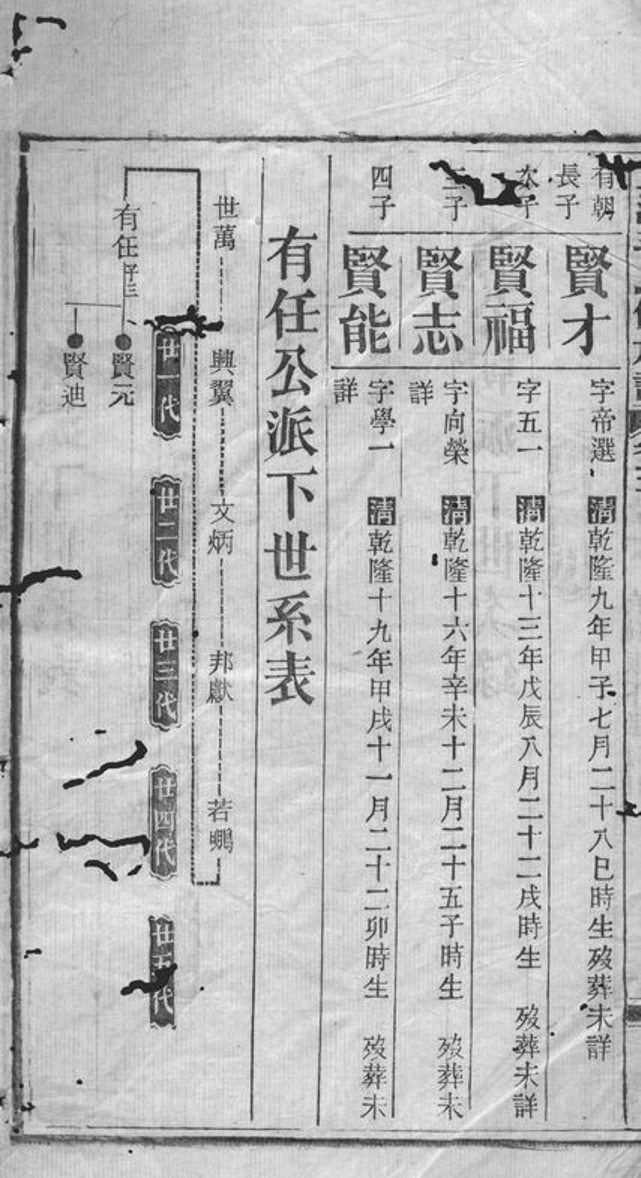 有朝
長子
賢才
字帝選
清乾隆九年甲子七月二十八巳時生歿葬未詳
次子
賢福
字五一
清乾隆十三年戊辰八月二十二戌時生 歿葬未詳
三子
賢志
字向榮
清乾隆十六年辛未十二月二十五子時生 歿葬未
詳
四子
賢能
字學一
清乾隆十九年甲戌十一月二十二卯時生 歿葬未
詳
有任公派下世系表
世萬
興翼
文炳
邦獻
若鵬
廿一代
廿二代
廿三代
廿四代
廿五代
有任
賢元
賢迪